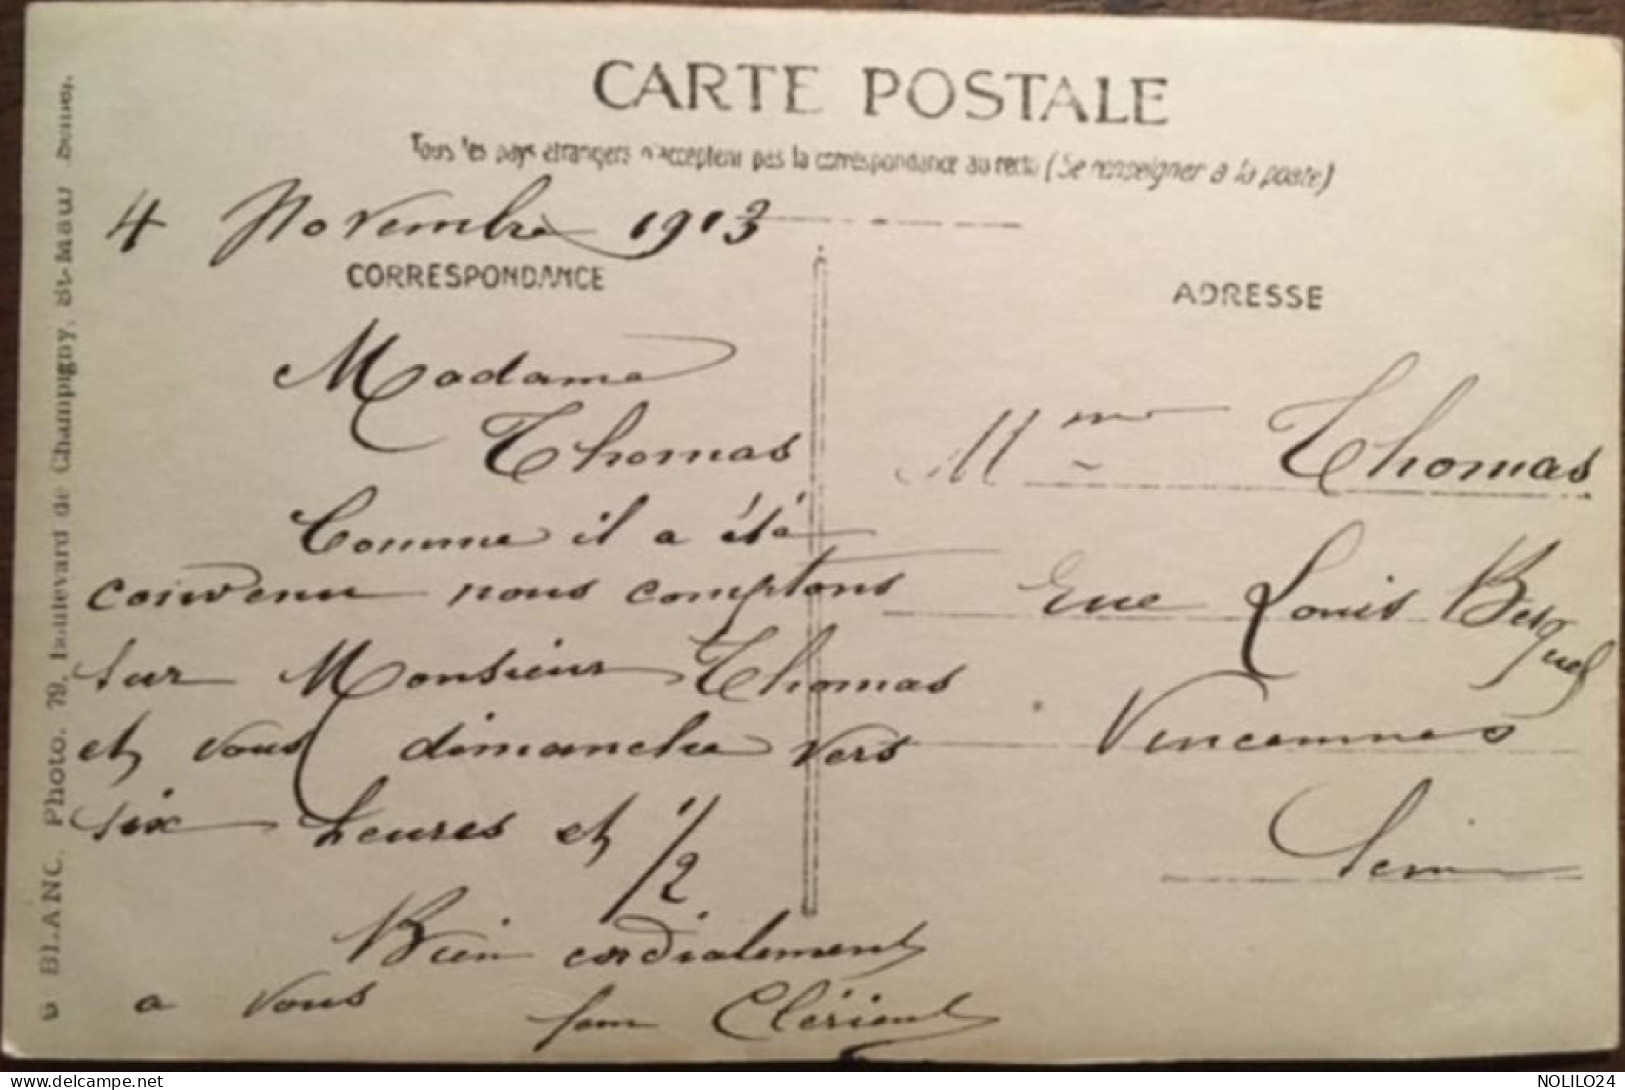 CARTE POSTALE
Tous les pays étrangers n'acceptent pas la correspondance au recto (Se renseigner à la poste)
4 Novembre 1913
CORRESPONDANCE
Madame
Thomas
Comme il a été
convenu nous comptons
sur Monsieur Thomas
et vous dimanche vers
six heures et 1/2
Bien cordialement
a vous
ADRESSE
Mme Thomas
Rue Louis Besquel
Vincennes
Seine
BLANC, Photo. 79, Boulevard de Champigny, St-Maur
NOLILO24